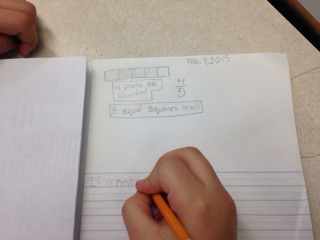 Feb. 9, 2015
4 parts are
shaded
4
5
5 equal squares in all
If a